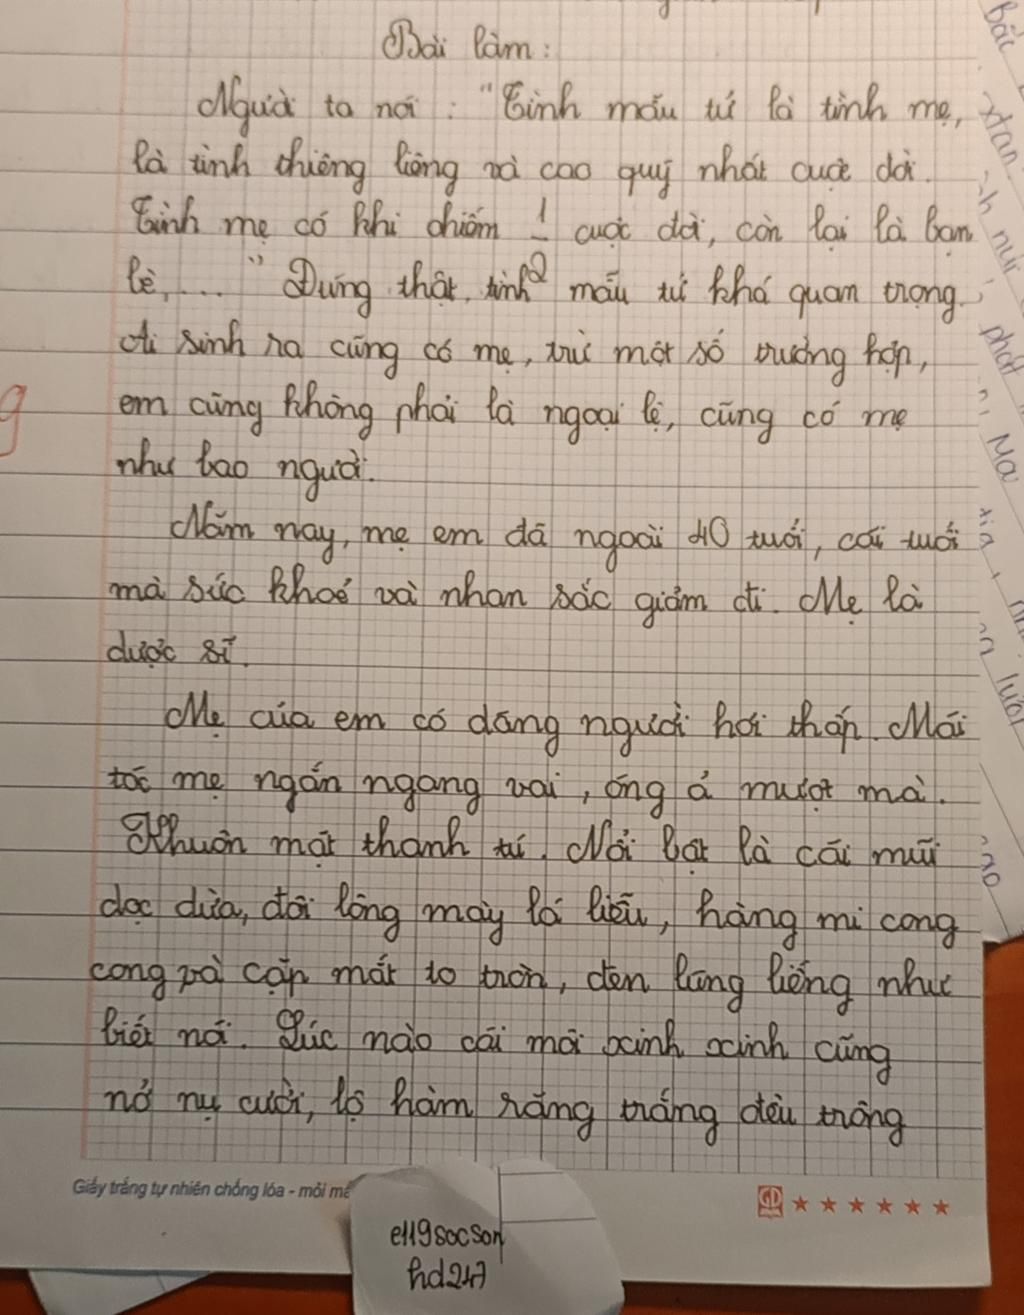 Bài làm:
Người ta nói: "Tình mẫu tử là tình mẹ,
là tình thiêng liêng và cao quý nhất cuộc đời.
Tình mẹ có khi chiếm 1/2 cuộc đời, còn lại là bạn
bè,..." Đúng thật, tình mẫu tử khá quan trọng.
Ai sinh ra cũng có mẹ, trừ một số trường hợp,
em cũng không phải là ngoại lệ, cũng có mẹ
như bao người.
Năm nay, mẹ em đã ngoài 40 tuổi, cái tuổi
mà sức khoẻ và nhan sắc giảm đi. Mẹ là
dược sĩ.
Mẹ của em có dáng người hơi thấp. Mái
tóc mẹ ngắn ngang vai, óng ả mượt mà.
Khuôn mặt thanh tú. Nổi bật là cái mũi
dọc dừa, đôi lông mày lá liễu, hàng mi cong
cong và cặp mắt to tròn, đen láng liếng như
biết nói. Lúc nào cái môi xinh xinh cũng
nở nụ cười, lộ hàm răng trắng đều trông
Giấy trắng tự nhiên chống lóa - mỏi
GD
e119socson
hd247